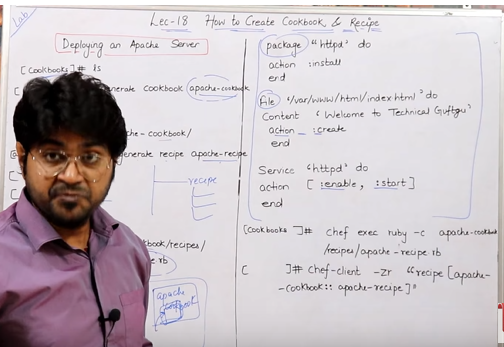 Lab
Lec-18 How to Create Cookbook & Recipe
Deploying an Apache Server
[Cookbooks]# ls
generate cookbook apache-cookbook
-cookbook/
generate recipe apache-recipe
recipe
cookbook/recipes/
rb
apache
package "httpd" do
action :install
end
file '/var/www/html/index.html' do
Content 'Welcome to Technical Guftgu'
action :create
end
Service 'httpd' do
action [:enable, :start]
end
[Cookbooks]# chef exec ruby -c apache-cookbook
/recipes/apache-recipe.rb
[ ]# chef-client -zr "recipe[apache-
-cookbook::apache-recipe]"